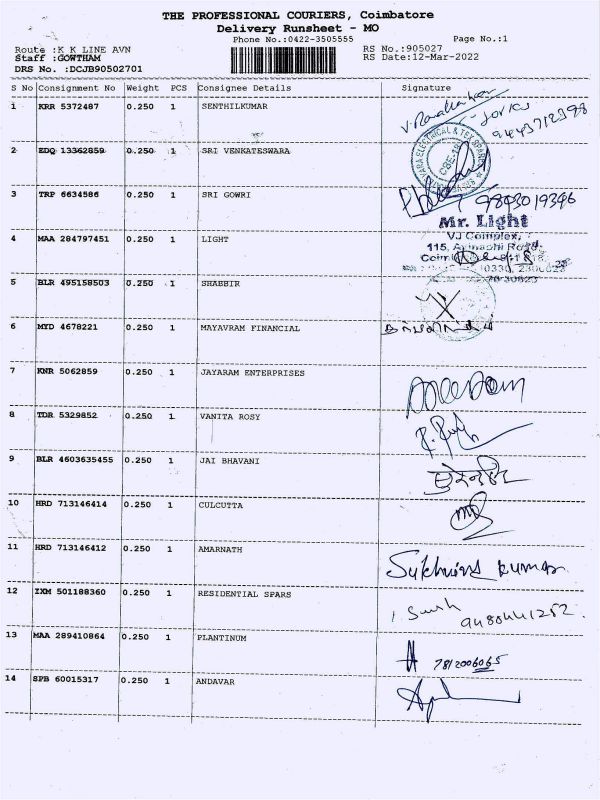 THE PROFESSIONAL COURIERS, Coimbatore
Delivery Runsheet - MO
Phone No.:0422-3505555
Page No.:1
Route :K K LINE AVN
RS No.:905027
Staff :GOWTHAM
RS Date:12-Mar-2022
DRS No. :DCJB90502701
S No Consignment No Weight PCS Consignee Details Signature
1 KRR 5372487 0.250 1 SENTHILKUMAR
9443712398
2 EDQ 13362859 0.250 1 SRI VENKATESWARA
3 TRP 6634586 0.250 1 SRI GOWRI 9843019396
Mr. Light
4 MAA 284797451 0.250 1 LIGHT
VJ Complex,
115, Avinashi Road,
5 BLR 495158503 0.250 1 SHABBIR
6 MYD 4678221 0.250 1 MAYAVRAM FINANCIAL
7 KNR 5062859 0.250 1 JAYARAM ENTERPRISES
8 TDR 5329852 0.250 1 VANITA ROSY
9 BLR 4603635455 0.250 1 JAI BHAVANI
10 HRD 713146414 0.250 1 CULCUTTA
11 HRD 713146412 0.250 1 AMARNATH
Sukhwind kumar
12 IXM 501188360 0.250 1 RESIDENTIAL SPARS
13 MAA 289410864 0.250 1 PLANTINUM
7812006065
14 SPB 60015317 0.250 1 ANDAVAR